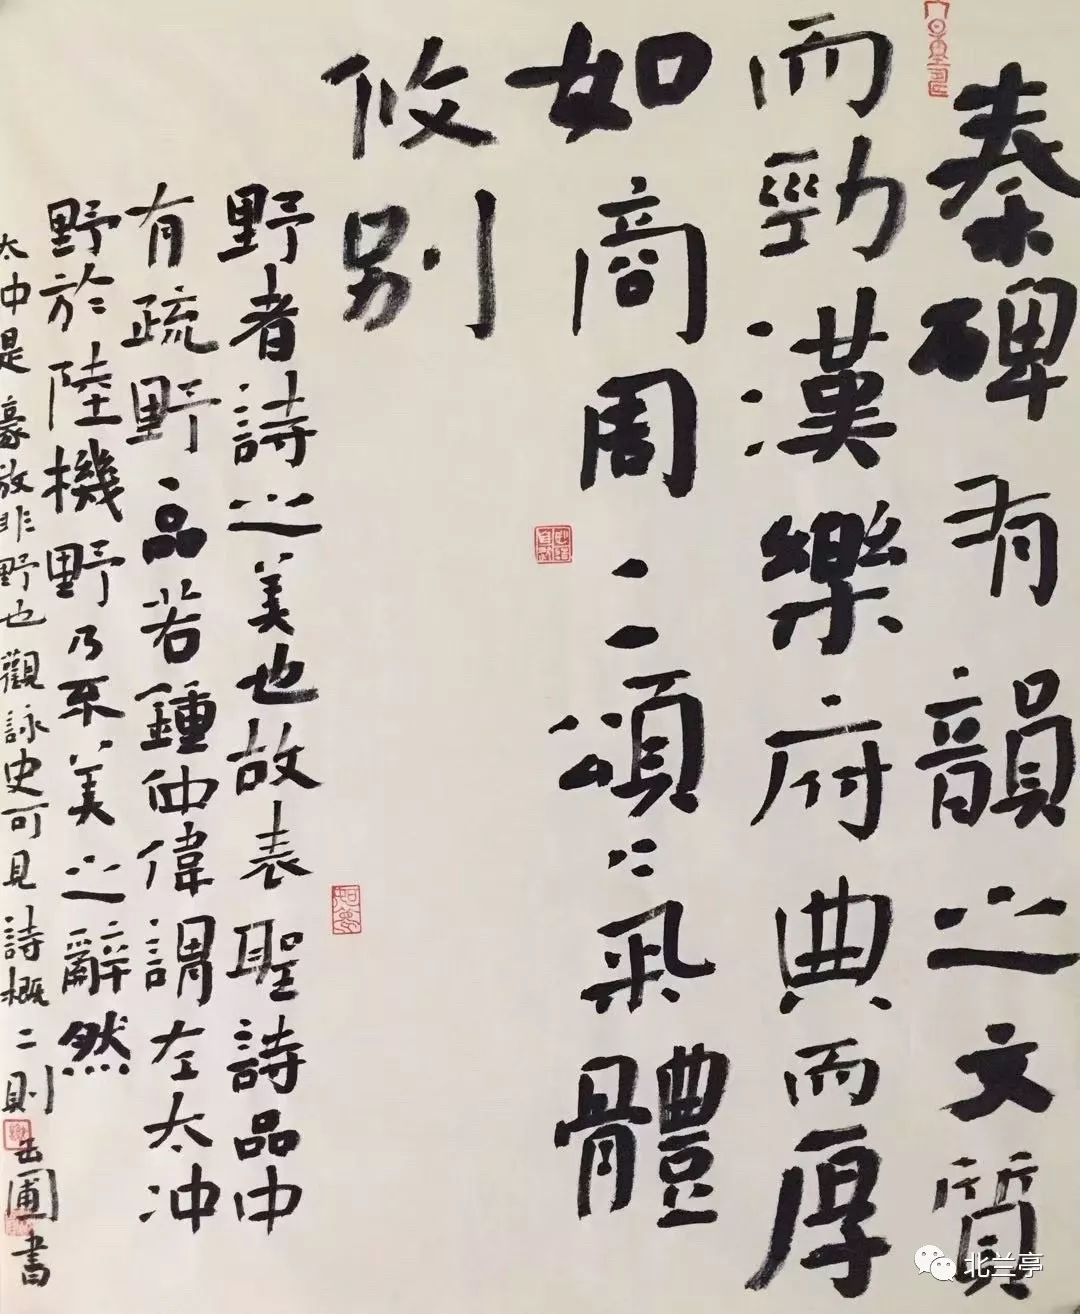 秦碑有韻之文質
而勁漢樂府典而厚
如商周二頌氣體
攸别
野者詩之美也故表聖詩品中
有疏野一品若鍾仲偉謂左太冲
野於陸機野乃不美之辭然
太中是豪放非野也觀詠史可見詩概二則 圃書
北兰亭